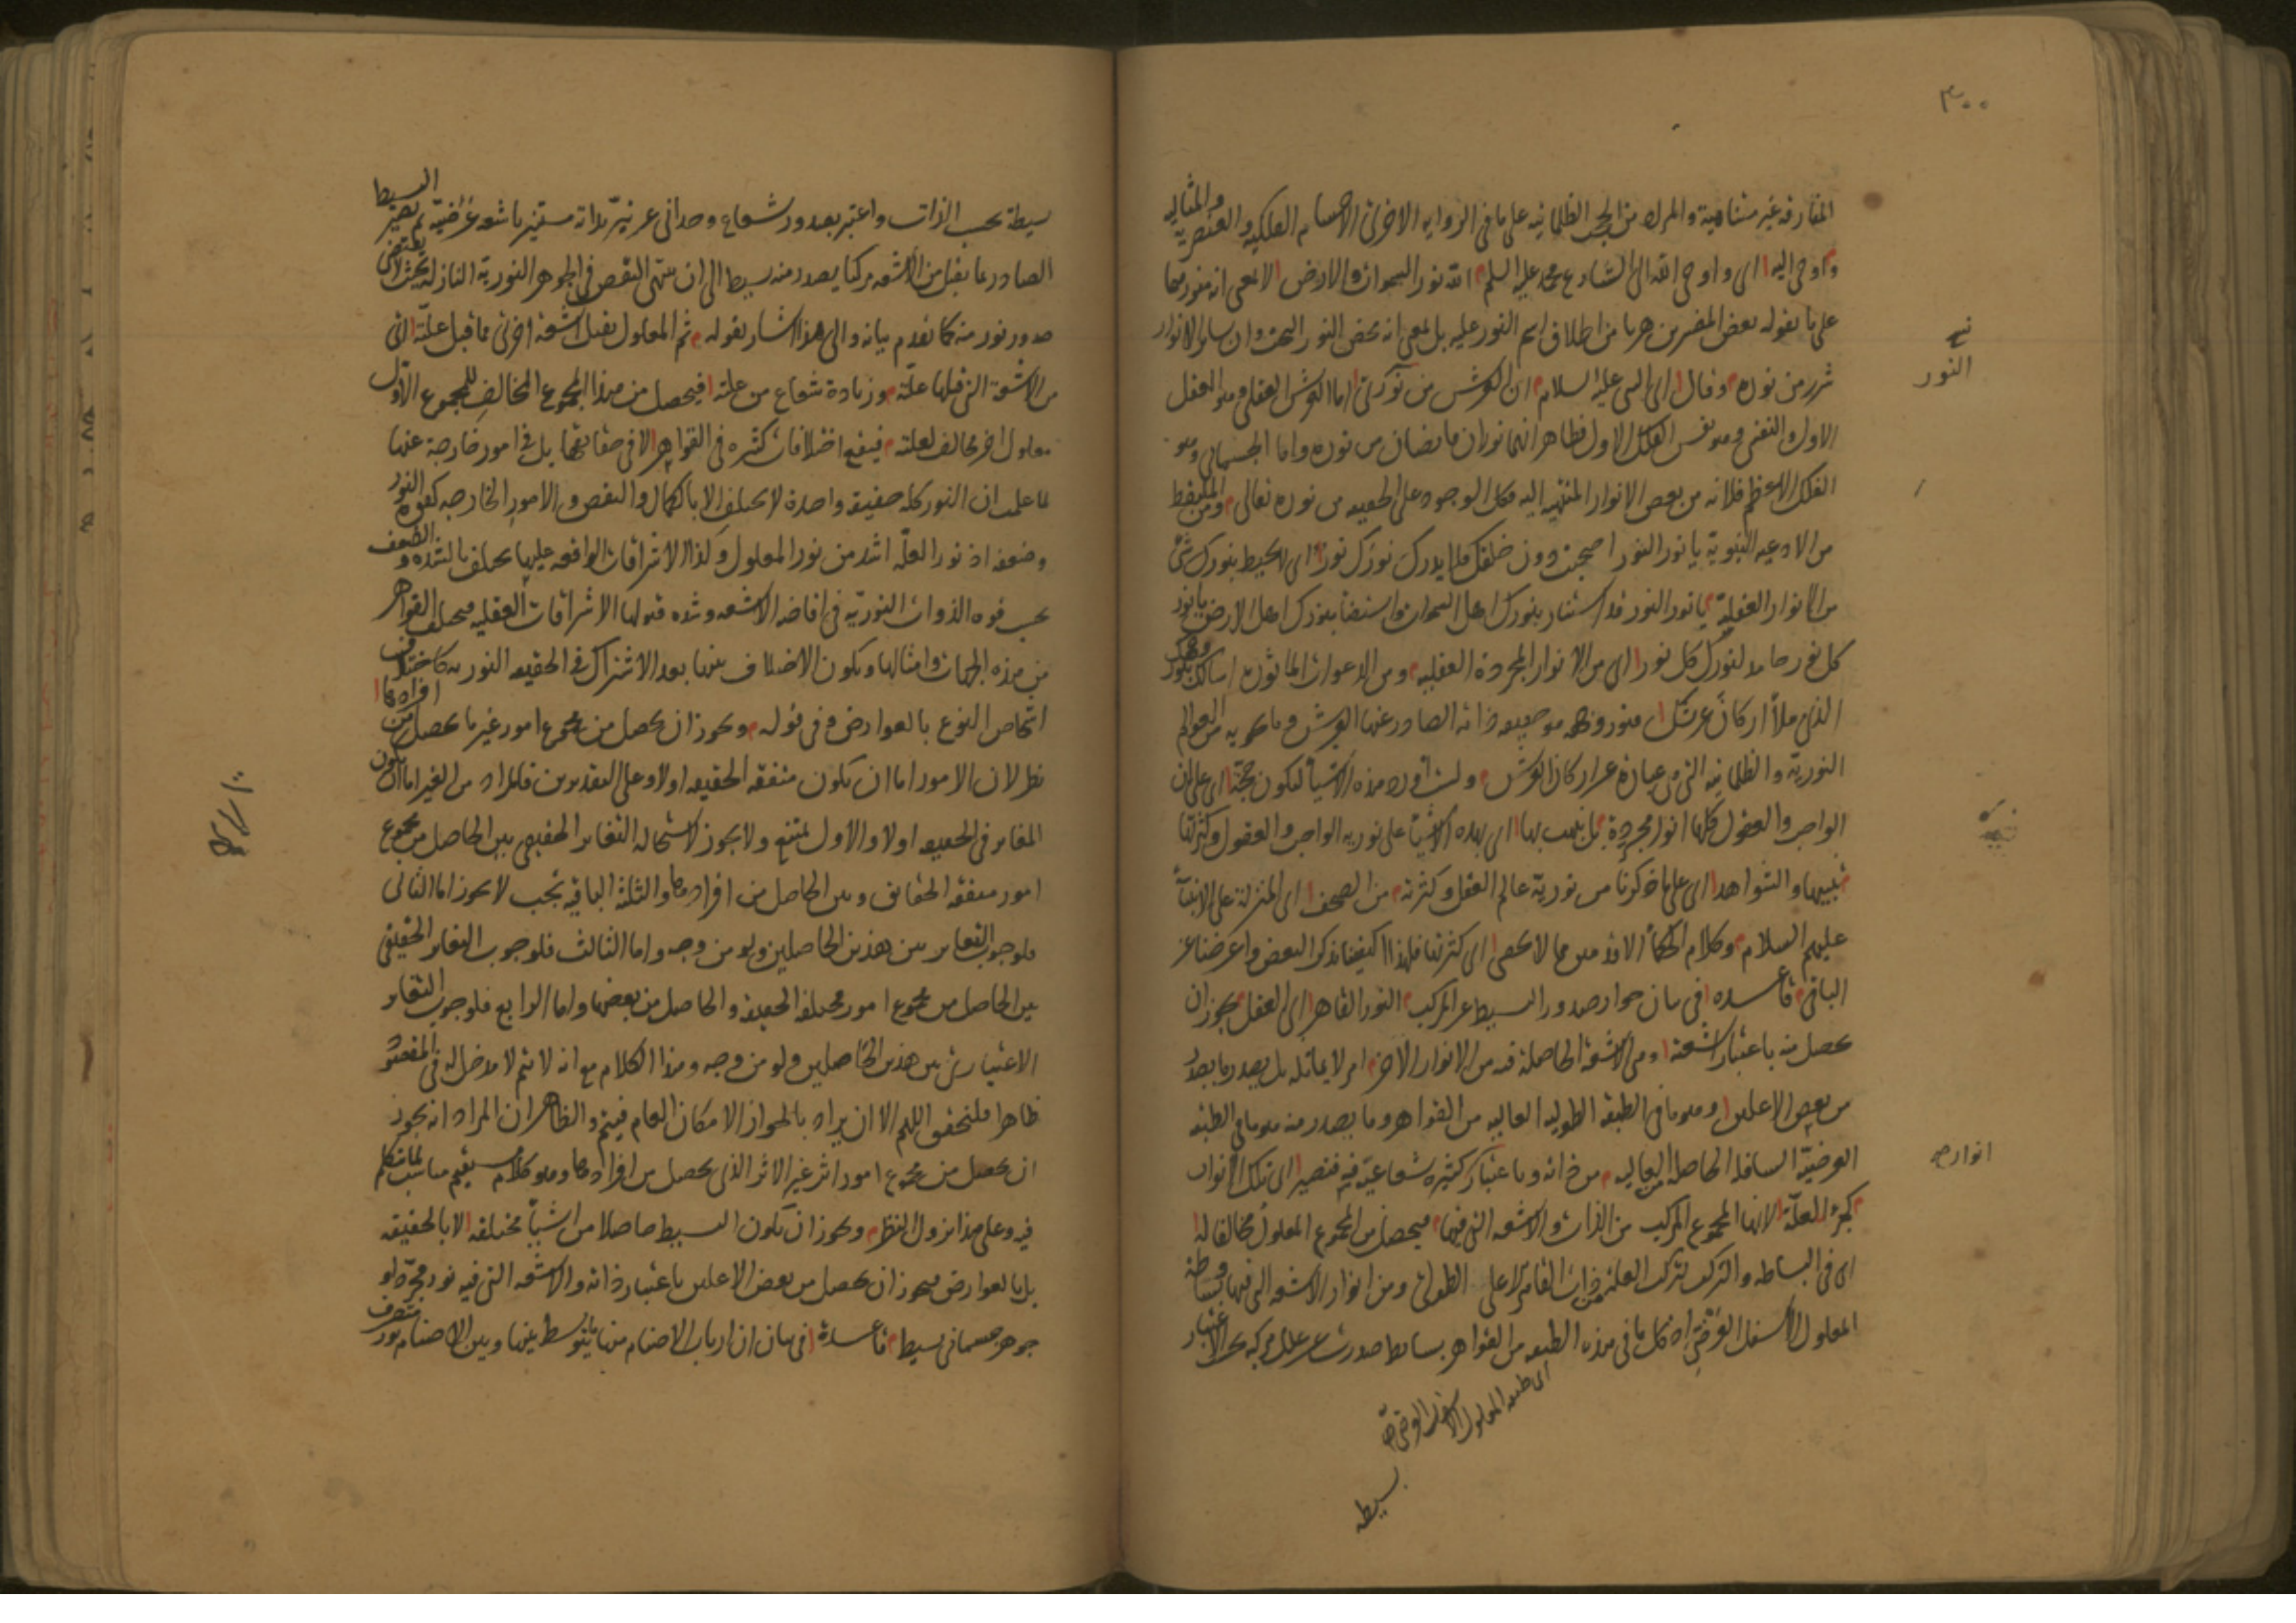 ٣٠٠
المفارقة غير متناهية والمراد من الحجب الظلمانية على ما في الرواية الاخرى الاجسام الفلكية والعنصرية والمثالية
وما اوحى اليه اى واوحى الله الى الشارع محمد عليه السلم الله نور السموات والارض لا بمعنى انه منورهما
على ما يقوله بعض المفسرين هربا من اطلاق اسم النور عليه بل بمعنى انه محض النور البحت وان سائر الانوار
شرر من نوره وقال اى النبى عليه السلام ان العرش من نورى اما العرش العقلى وهو العقل
الاول والنفسى وهو نفس الفلك الاول فظاهر انهما نوران فائضان من نوره واما الجسمانى وهو
الفلك الاعظم فلانه من بعض الانوار المنتهية اليه فكل الوجود على الحقيقة من نوره تعالى ومن الملتقط
من الادعية النبوية يا نور النور احتجبت دون خلقك فلا يدرك نورك نور اى لا يحيط بنورك شئ
من الانوار العقلية يا نور النور قد استنار بنورك اهل السموات واستضاء بنورك اهل الارض يا نور
كل نور خامد لنورك كل نور اى من الانوار المجردة العقلية ومن الدعوات الماثورة اسألك بنور وجهك
الذى ملأ اركان عرشك اى بنور وجهه هو حقيقة ذاته الصادر عنها العرش وما يحويه من العوالم
النورية والظلمانية التى هى عبارة عن اركان العرش ولست اورد هذه الاشياء لتكون حجة اى على ان
الواجب والعقول كلها انوار مجردة بل نبهت بها اى بهذه الاشياء على نورية الواجب والعقول وكثرتها
تنبيها والشواهد اى على ما ذكرنا من نورية عالم العقل وكثرته من الصحف اى المنزلة على الانبياء
عليهم السلام وكلام الحكماء الاقدمين مما لا يحصى اى كثرتها فلهذا اكتفينا بذكر البعض واعرضنا عن
الباقى قاعدة فى بيان جواز صدور البسيط عن المركب النور القاهر اى العقل يجوز ان
يحصل منه باعتبار اشعته اى هى الاشعة الحاصلة فيه من الانوار الاخر امر لا يماثله بل يصدر ما يصدر
من بعض الاعلين وهو ما فى الطبقة الطولية العالية من القواهر وما يصدر منه هو ما فى الطبقة
العرضية السافلة الحاصلة من العالية من ذاته وباعتبار كثرة شعاعية فيه فتصير اى تلك الانوار
كجزء العلة لانها المجموع المركب من الذات والاشعة التى فيها فيحصل من المجموع المعلول مخالفا لها
اى فى البساطة والتركيب لتركب العلة من ذات القاهر الاعلى الطولى ومن انوار الاشعة التى فيها وبساطة
المعلول الاسفل العرضى اذ كل ما فى هذه الطبقة من القواهر بسائط صدرت عن علل مركبة بحسب الاعتبار
اى طبقة المعلول الاسفل العرضى
بسيطة
النور
انوار
بسيطة بحسب الذات واعتبر بصدور شعاع وحدانى عن نير بذاته مستنير باشعة عرضية ثم يصير البسيط
الصادر بما يقبل من الاشعة مركبا يصدر منه بسيط الى ان ينتهى النقص فى الجوهر النورية النازلة بحيث لا يقتضى
صدور نور منه كما تقدم بيانه والى هذا اشار بقوله ثم المعلول يقبل اشعة اخرى مما قبل علته التى
من الاشعة التى قبلها علته وزيادة شعاع من علته فيحصل من هذا المجموع المخالف للمجموع الاول
معلول اخر مخالف لعلته فيقع اختلافات كثيرة فى القواهر لا فى حقائقها بل فى امور خارجة عنها
لما علمت ان النور كله حقيقة واحدة لا يختلف الا بالكمال والنقص والامور الخارجة كقوة النور
وضعفه اذ نور العلة اشد من نور المعلول وكذا الاشراقات الواقعة عليها يختلف بالشدة والضعف
بحسب قوة الذوات النورية فى افاضة الاشعة وشدة قبولها الاشراقات العقلية فيختلف القواهر
من هذه الجهات وامثالها ويكون الاختلاف بينها بعد الاشتراك فى الحقيقة النورية كاختلاف
اشخاص النوع بالعوارض وفى قوله ويجوز ان يحصل من مجموع امور غير ما يحصل من افرادها
نظر لان الامور اما ان تكون متفقة الحقيقة اولا وعلى التقديرين فالمراد من الغير اما ان يكون
المغاير فى الحقيقة اولا والاول ممتنع ولا يجوز لاستحالة التغاير الحقيقى بين الحاصل من مجموع
امور متفقة الحقائق وبين الحاصل من افرادها والثلثة الباقية تجب لا يجوز اما الثانى
فلوجوب التغاير بين هذين الحاصلين ولو من وجه واما الثالث فلوجوب التغاير الحقيقى
بين الحاصل من مجموع امور مختلفة الحقيقة والحاصل من بعضها واما الرابع فلوجوب التغاير
الاعتبارى بين هذين الحاصلين ولو من وجه وهذا الكلام مع انه لا يتم لا مدخل له فى المقصود
ظاهرا فليتحقق اللهم الا ان يراد بالجواز الامكان العام فيتم والظاهر ان المراد انه يجوز
ان يحصل من مجموع امور اثر غير الاثر الذى يحصل من افرادها وهو كلام مستقيم مناسب لما نتكلم
فيه وعلى هذا يزول النظر ويجوز ان يكون البسيط حاصلا من اشياء مختلفة لا بالحقيقة
بل بالعوارض فيجوز ان يحصل من بعض الاعلين باعتبار ذاته والاشعة التى فيه نور مجرد او
جوهر جسمانى بسيط قاعدة فى بيان ان ارباب الاصنام منها ما يتوسط بينها وبين الاصنام نور متصرف